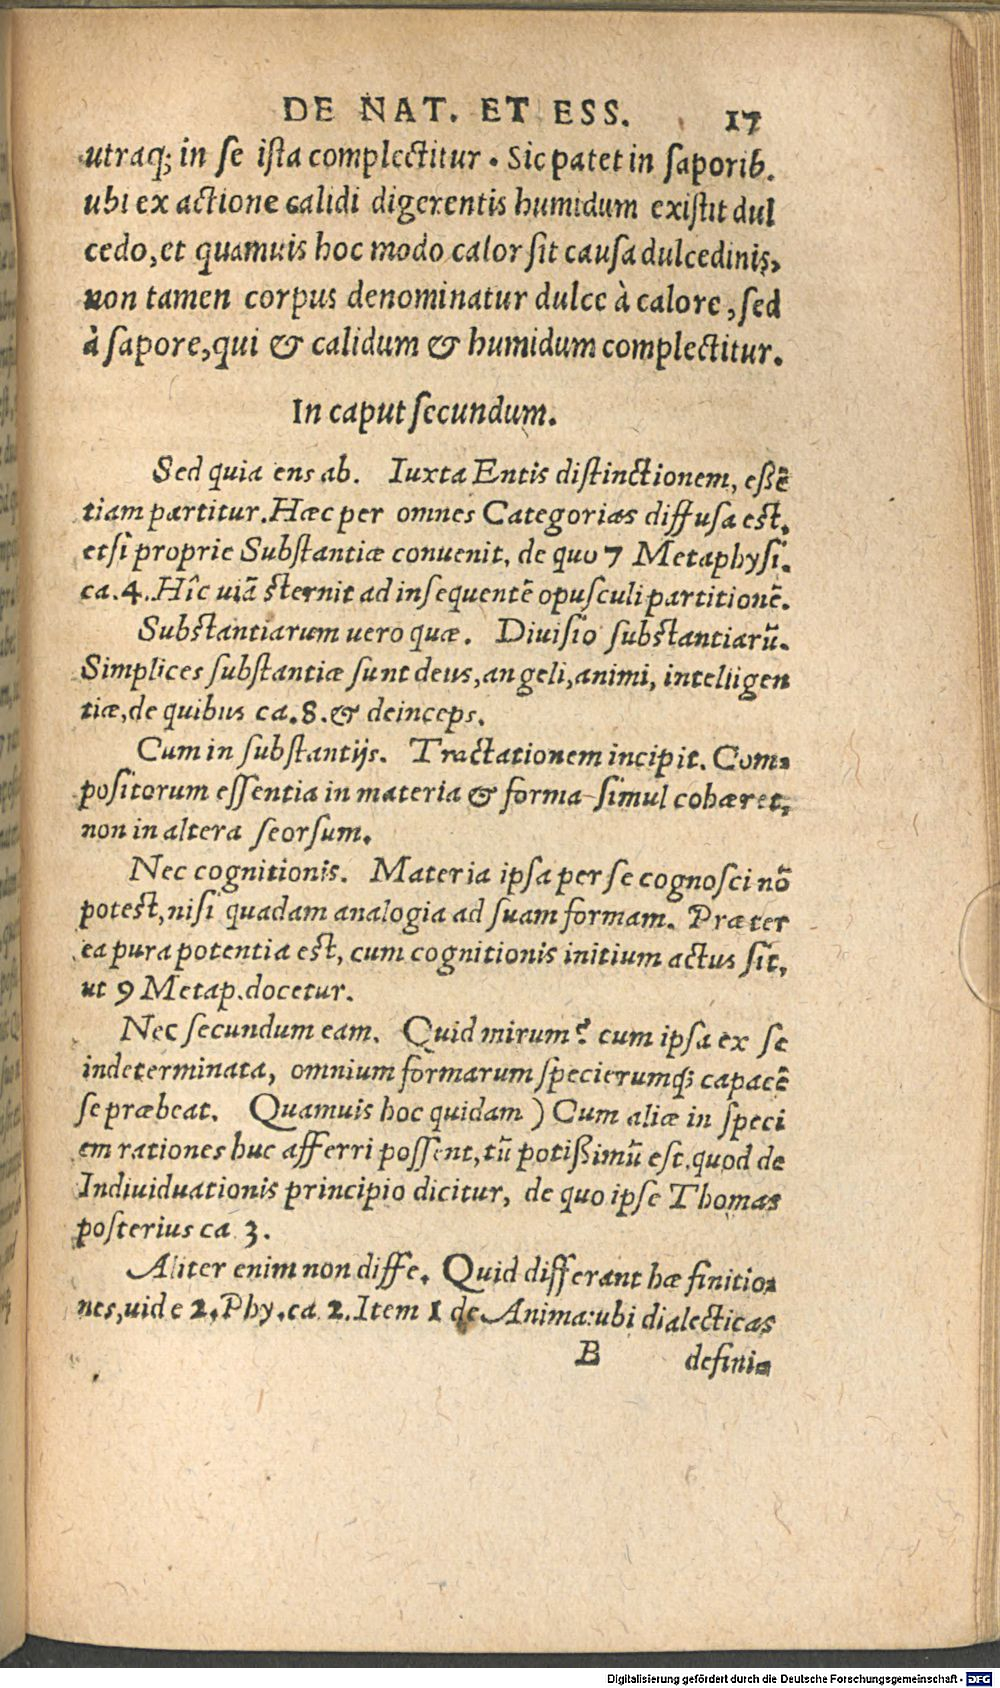 DE NAT. ET ESS. 17
utraq; in se ista complectitur. Sic patet in saporib.
ubi ex actione calidi digerentis humidum existit dul
cedo, et quamuis hoc modo calor sit causa dulcedinis,
non tamen corpus denominatur dulce à calore, sed
à sapore, qui & calidum & humidum complectitur.
In caput secundum.
Sed quia ens ab. Iuxta Entis distinctionem, essē
tiam partitur. Hæc per omnes Categorias diffusa est,
etsi proprie Substantiæ conuenit, de quo 7 Metaphysi.
ca. 4. Hîc uiã sternit ad insequentē opusculi partitionē.
Substantiarum uero quæ. Diuisio substantiarũ.
Simplices substantiæ sunt deus, angeli, animi, intelligen
tiæ, de quibus ca. 8. & deinceps.
Cum in substantijs. Tractationem incipit. Com-
positorum essentia in materia & forma simul cohæret,
non in altera seorsum.
Nec cognitionis. Materia ipsa per se cognosci nõ
potest, nisi quadam analogia ad suam formam. Præter
ea pura potentia est, cum cognitionis initium actus sit,
ut 9 Metap. docetur.
Nec secundum eam. Quid mirum? cum ipsa ex se
indeterminata, omnium formarum specierumq; capacē
se præbeat. Quamuis hoc quidam ) Cum aliæ in speci
em rationes huc afferri possent, tũ potissimũ est, quod de
Indiuiduationis principio dicitur, de quo ipse Thomas
posterius ca 3.
Aliter enim non diffe. Quid differant hæ finitio-
nes, uide 2. Phy. ca 2. Item 1 de Anima: ubi dialecticas
B defini-
Digitalisierung gefördert durch die Deutsche Forschungsgemeinschaft - DFG